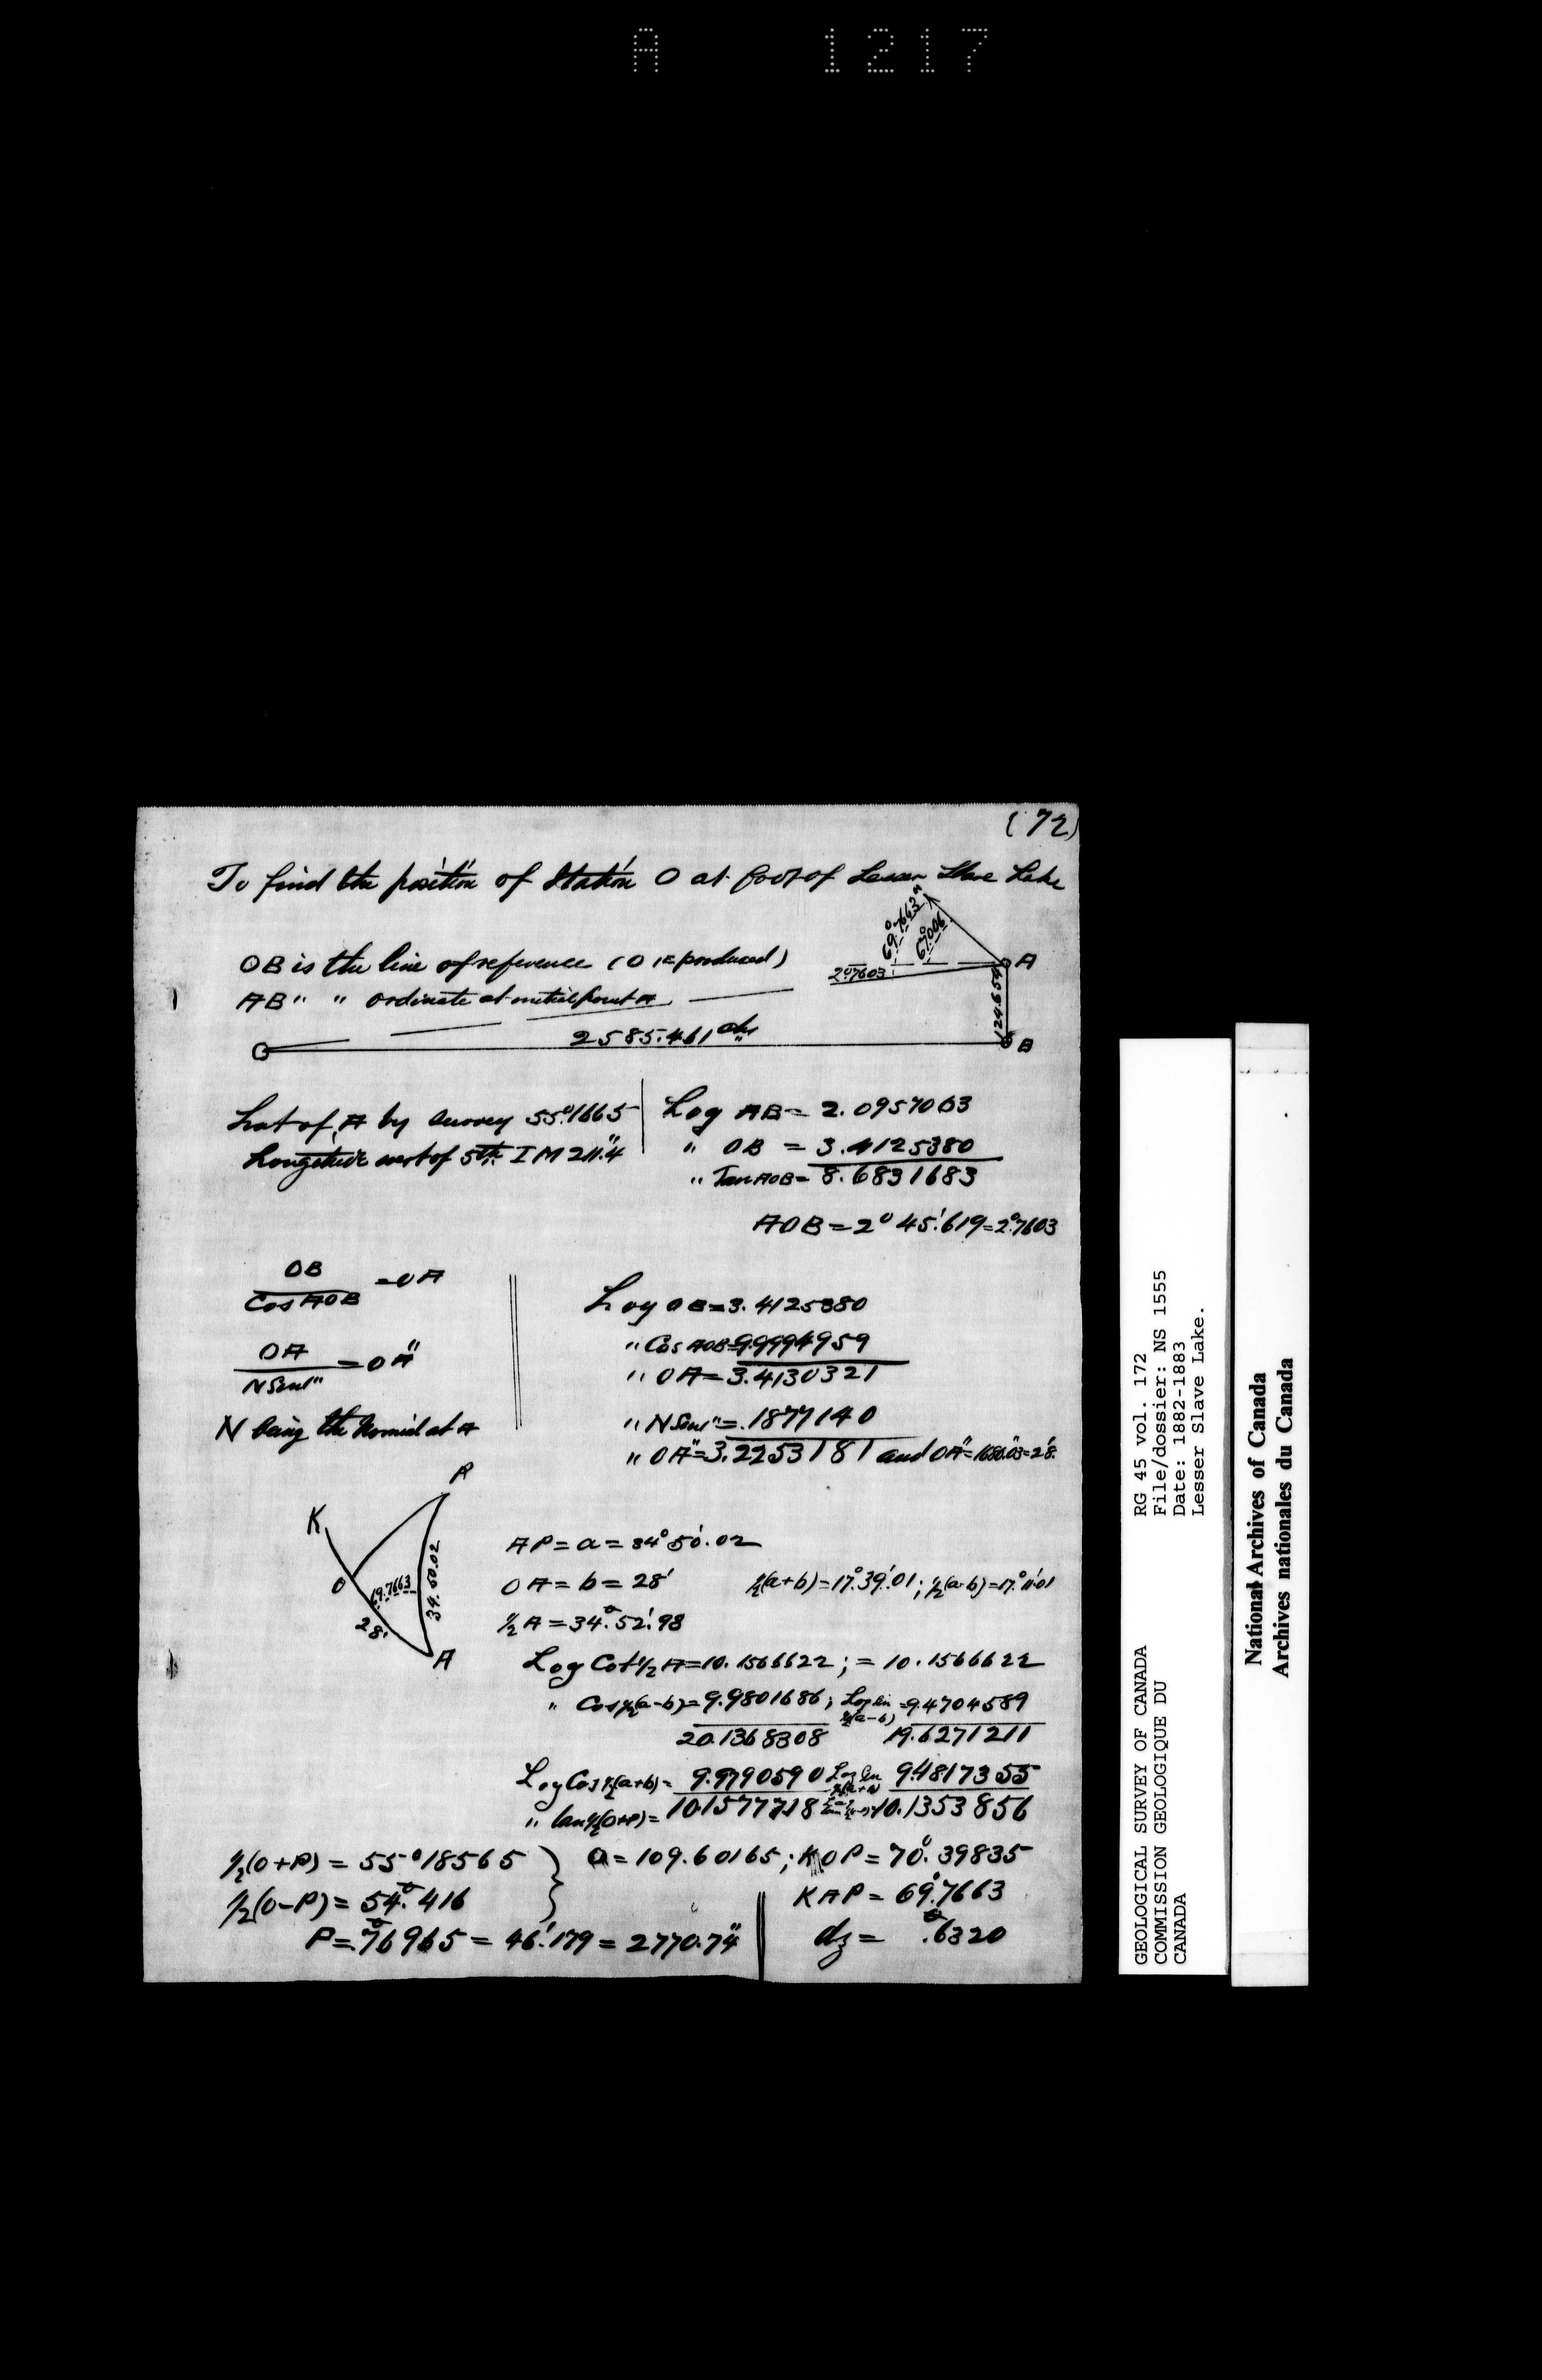 A 1217
(72)
To find the position of Station O at foot of Lesser Slave Lake
69°.7663
67°.006
2°.7603
A
124.659
OB is the line of reference (O E produced)
AB " " ordinate at initial point A
2585.461 chs
O
B
Lat of A by survey 55°.1665
Longitude west of 5th I M 211".4
Log AB = 2.0957063
" OB = 3.4125380
" Tan AOB = 8.6831683
AOB = 2° 45'.619 = 2°.7603
OB
Cos AOB = OA
OA
N Sin 1" = OA"
N being the Normal at A
Log OB = 3.4125380
" Cos AOB = 9.9994959
" OA = 3.4130321
" N Sin 1" = .1877140
" OA" = 3.2253181 and OA" = 1680".03 = 28'.
P
K
O
69.7663
34.50.02
28'
A
AP = a = 34° 50'.02
OA = b = 28'
½(a+b) = 17°.39'.01 ; ½(a-b) = 17°.11'.01
½ A = 34°.52'.98
Log Cot ½ A = 10.1566622 ; = 10.1566622
" Cos ½(a-b) = 9.9801686 ; Log Sin ½(a-b) = 9.4704589
20.1368308 19.6271211
Log Cos ½(a+b) = 9.9790590 Log Sin ½(a+b) 9.4817355
" tan ½(O+P) = 10.1577718 10.1353856
½(O+P) = 55°18565 } O = 109.60165 ; KOP = 70°.39835
½(O-P) = 54°.416
KAP = 69°.7663
P = °.76965 = 46'.179 = 2770.74"
dz = °.6320
GEOLOGICAL SURVEY OF CANADA
COMMISSION GEOLOGIQUE DU
CANADA
RG 45 vol. 172
File/dossier: NS 1555
Date: 1882-1883
Lesser Slave Lake.
National Archives of Canada
Archives nationales du Canada